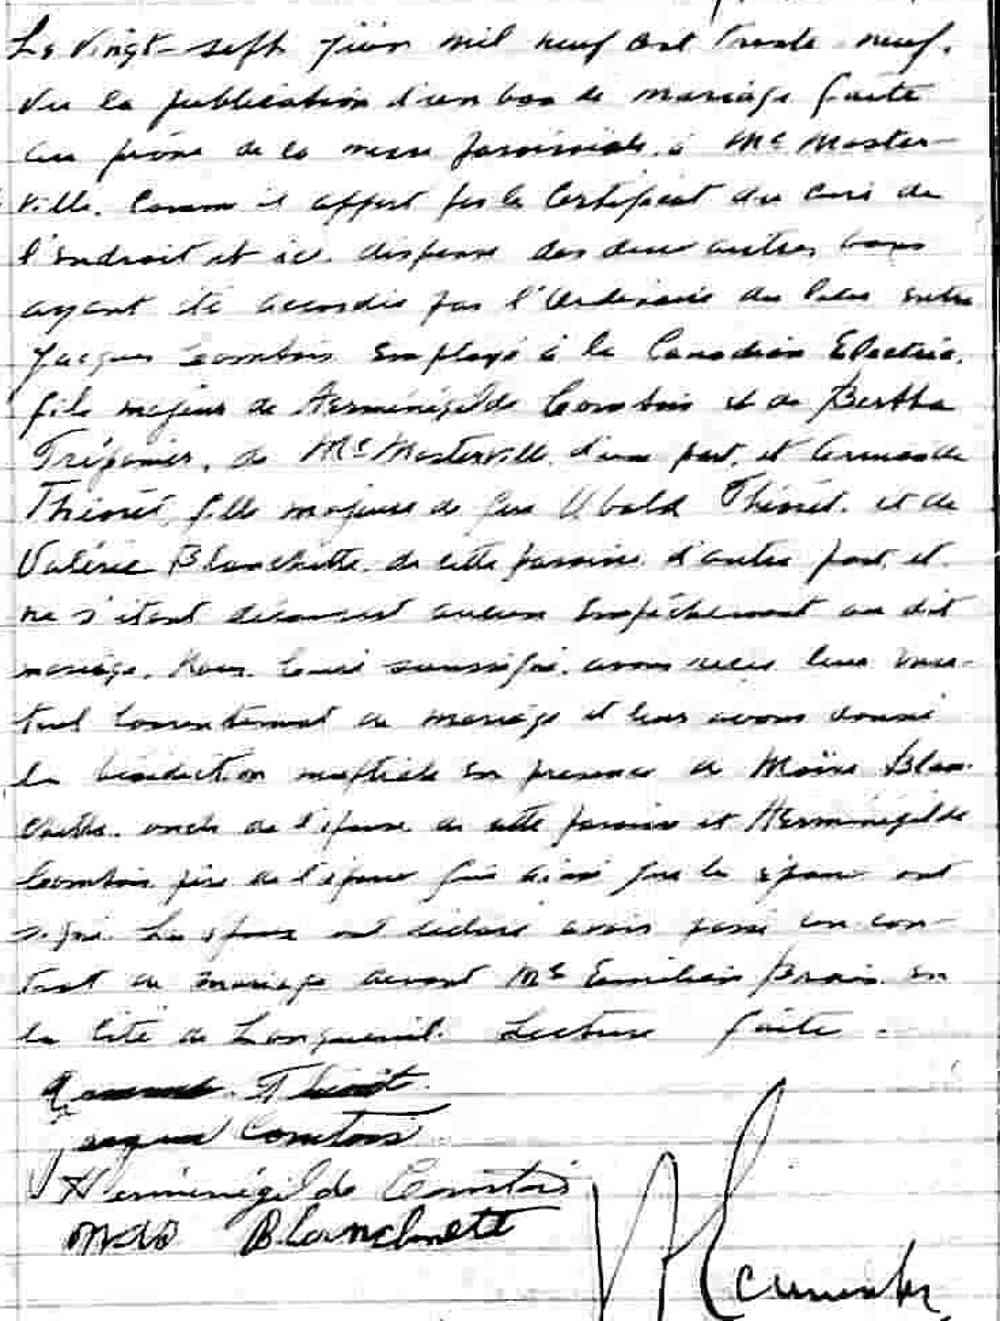 Le vingt-sept juin mil neuf cent trente neuf.
Vu la publication d'un ban de mariage faite
au prône de la messe paroissiale à McMaster-
ville. Comme il appert par le certificat du curé de
l'endroit et ici dispense des deux autres bans
ayant été accordée par l'Ordinaire du lieu entre
Jacques Comtois employé à la Canadian Electric,
fils majeur de Herménégilde Comtois et de Bertha
Trépanier, de McMasterville d'une part, et
Thinet, fille majeure de feu Ubald Thinet. et de
Valérie Blanchette de cette paroisse d'autre part, et
ne s'étant découvert aucun empêchement au dit
mariage, Nous, Curé soussigné, avons reçu leur mu-
tuel consentement de mariage et leur avons donné
la bénédiction nuptiale en présence de Moïse Blan-
chette oncle de l'épouse de cette paroisse et Herménégilde
Comtois père de l'époux qui ainsi que les époux ont
signé. Les époux ont déclaré avoir passé un con-
trat de mariage devant Me Emilien Brais en
la Cité de Longueuil. Lecture faite.
Jacques Comtois
Herménégilde Comtois
Blanchette